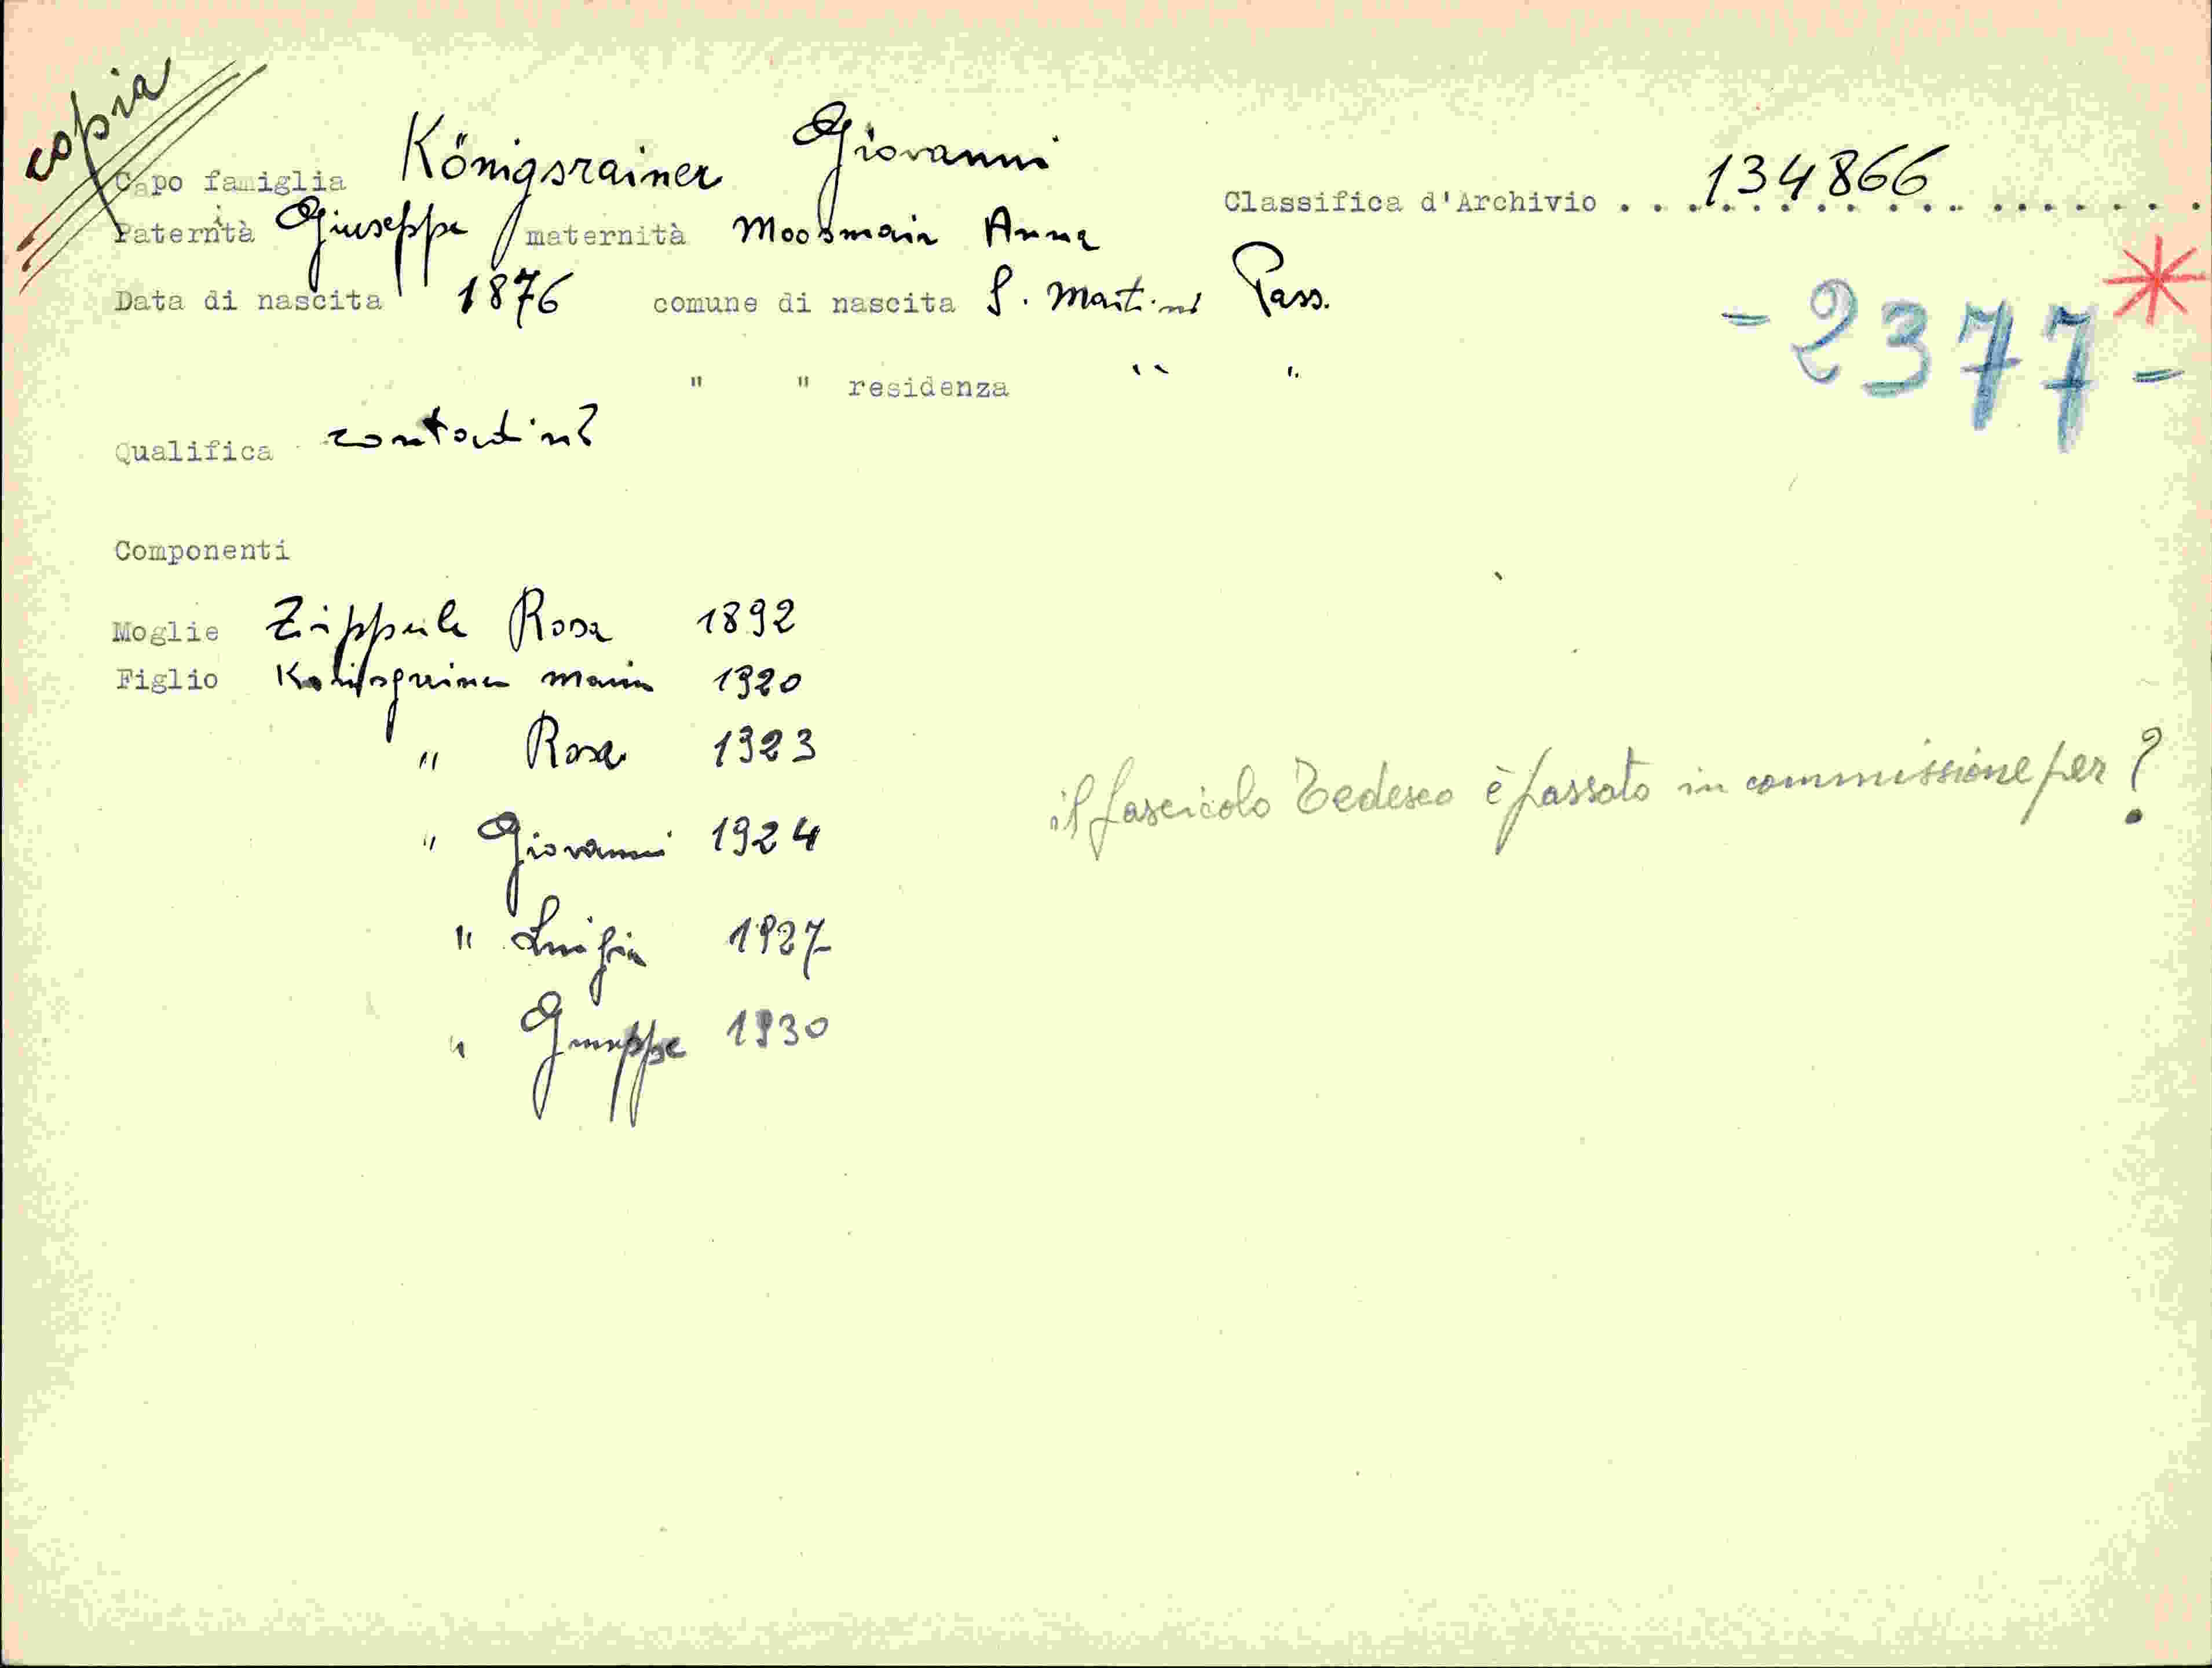 copia
Capo famiglia Königsrainer Giovanni
Classifica d'Archivio . . . 134866 . . .
Paternità Giuseppe maternità Moosmair Anna
Data di nascita 1876 comune di nascita S. Martino Pass.
-2377-
" " residenza " "
Qualifica contadino
Componenti
Moglie Rosa 1892
Figlio Maria 1920
" Rosa 1923
" Giovanni 1924
" Luigia 1927
" Giuseppe 1930
il fascicolo Tedesco è passato in commissione per ?